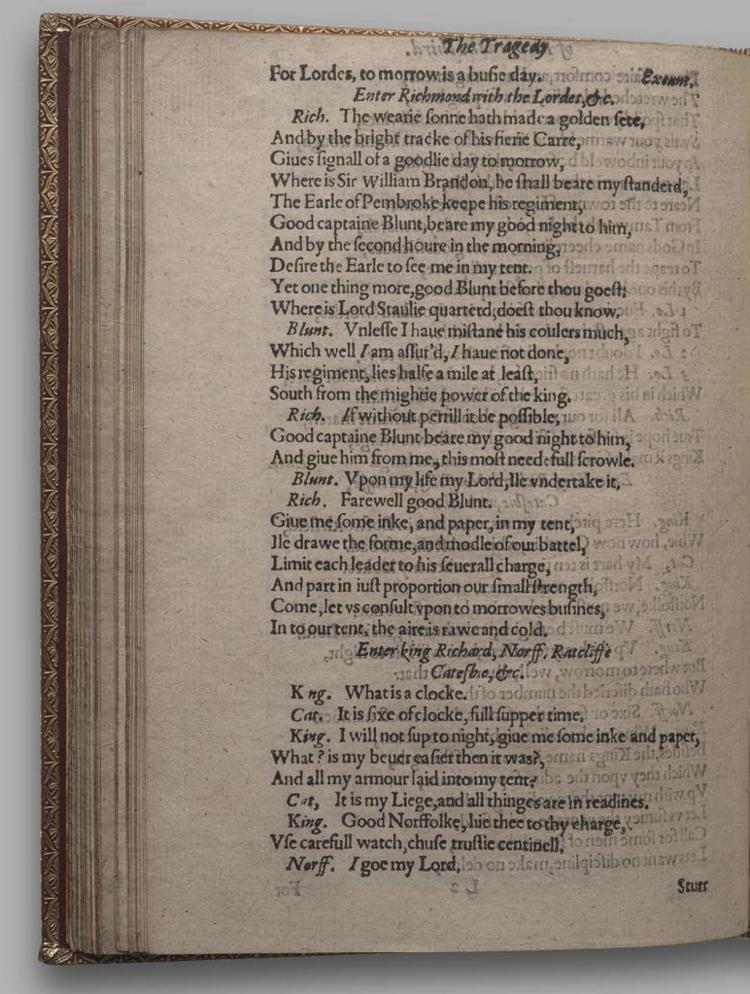 The Tragedy
For Lordes, to morrow is a busie day. Exeunt.
Enter Richmond with the Lordes,&c.
Rich. The wearie sonne hath made a golden sete,
And by the bright tracke of his fierie Carre,
Giues signall of a goodlie day to morrow,
Where is Sir William Brandon, he shall beare my standerd,
The Earle of Pembroke keepe his regiment,
Good captaine Blunt,beare my good night to him,
And by the second houre in the morning,
Desire the Earle to see me in my tent.
Yet one thing more,good Blunt before thou goest;
Where is Lord Stanlie quarterd,doest thou know.
Blunt. Vnlesse I haue mistane his coulers much,
Which well I am assur'd, I haue not done,
His regiment, lies halfe a mile at least,
South from the mightie power of the king.
Rich. If without perrill it be possible,
Good captaine Blunt beare my good night to him,
And giue him from me, this most needefull scrowle.
Blunt. Vpon my life my Lord, Ile vndertake it,
Rich. Farewell good Blunt.
Giue me some inke, and paper, in my tent,
Ile drawe the forme,and modle of our battel,
Limit each leader to his seuerall charge,
And part in iust proportion our small strength,
Come,let vs consult vpon to morrowes busines,
In to our tent, the aire is rawe and cold.
Enter king Richard, Norff. Ratcliffe
Catesbie,&c.
K ng. What is a clocke.
Cat. It is sixe of clocke, full supper time.
King. I will not sup to night, giue me some inke and paper,
What ? is my beuer easier then it was?,
And all my armour laid into my tent?
Cat, It is my Liege,and all thinges are in readines.
King. Good Norffolke, hie thee to thy charge,
Vse carefull watch, chuse trustie centinell,
Norff. I goe my Lord,
Sturr